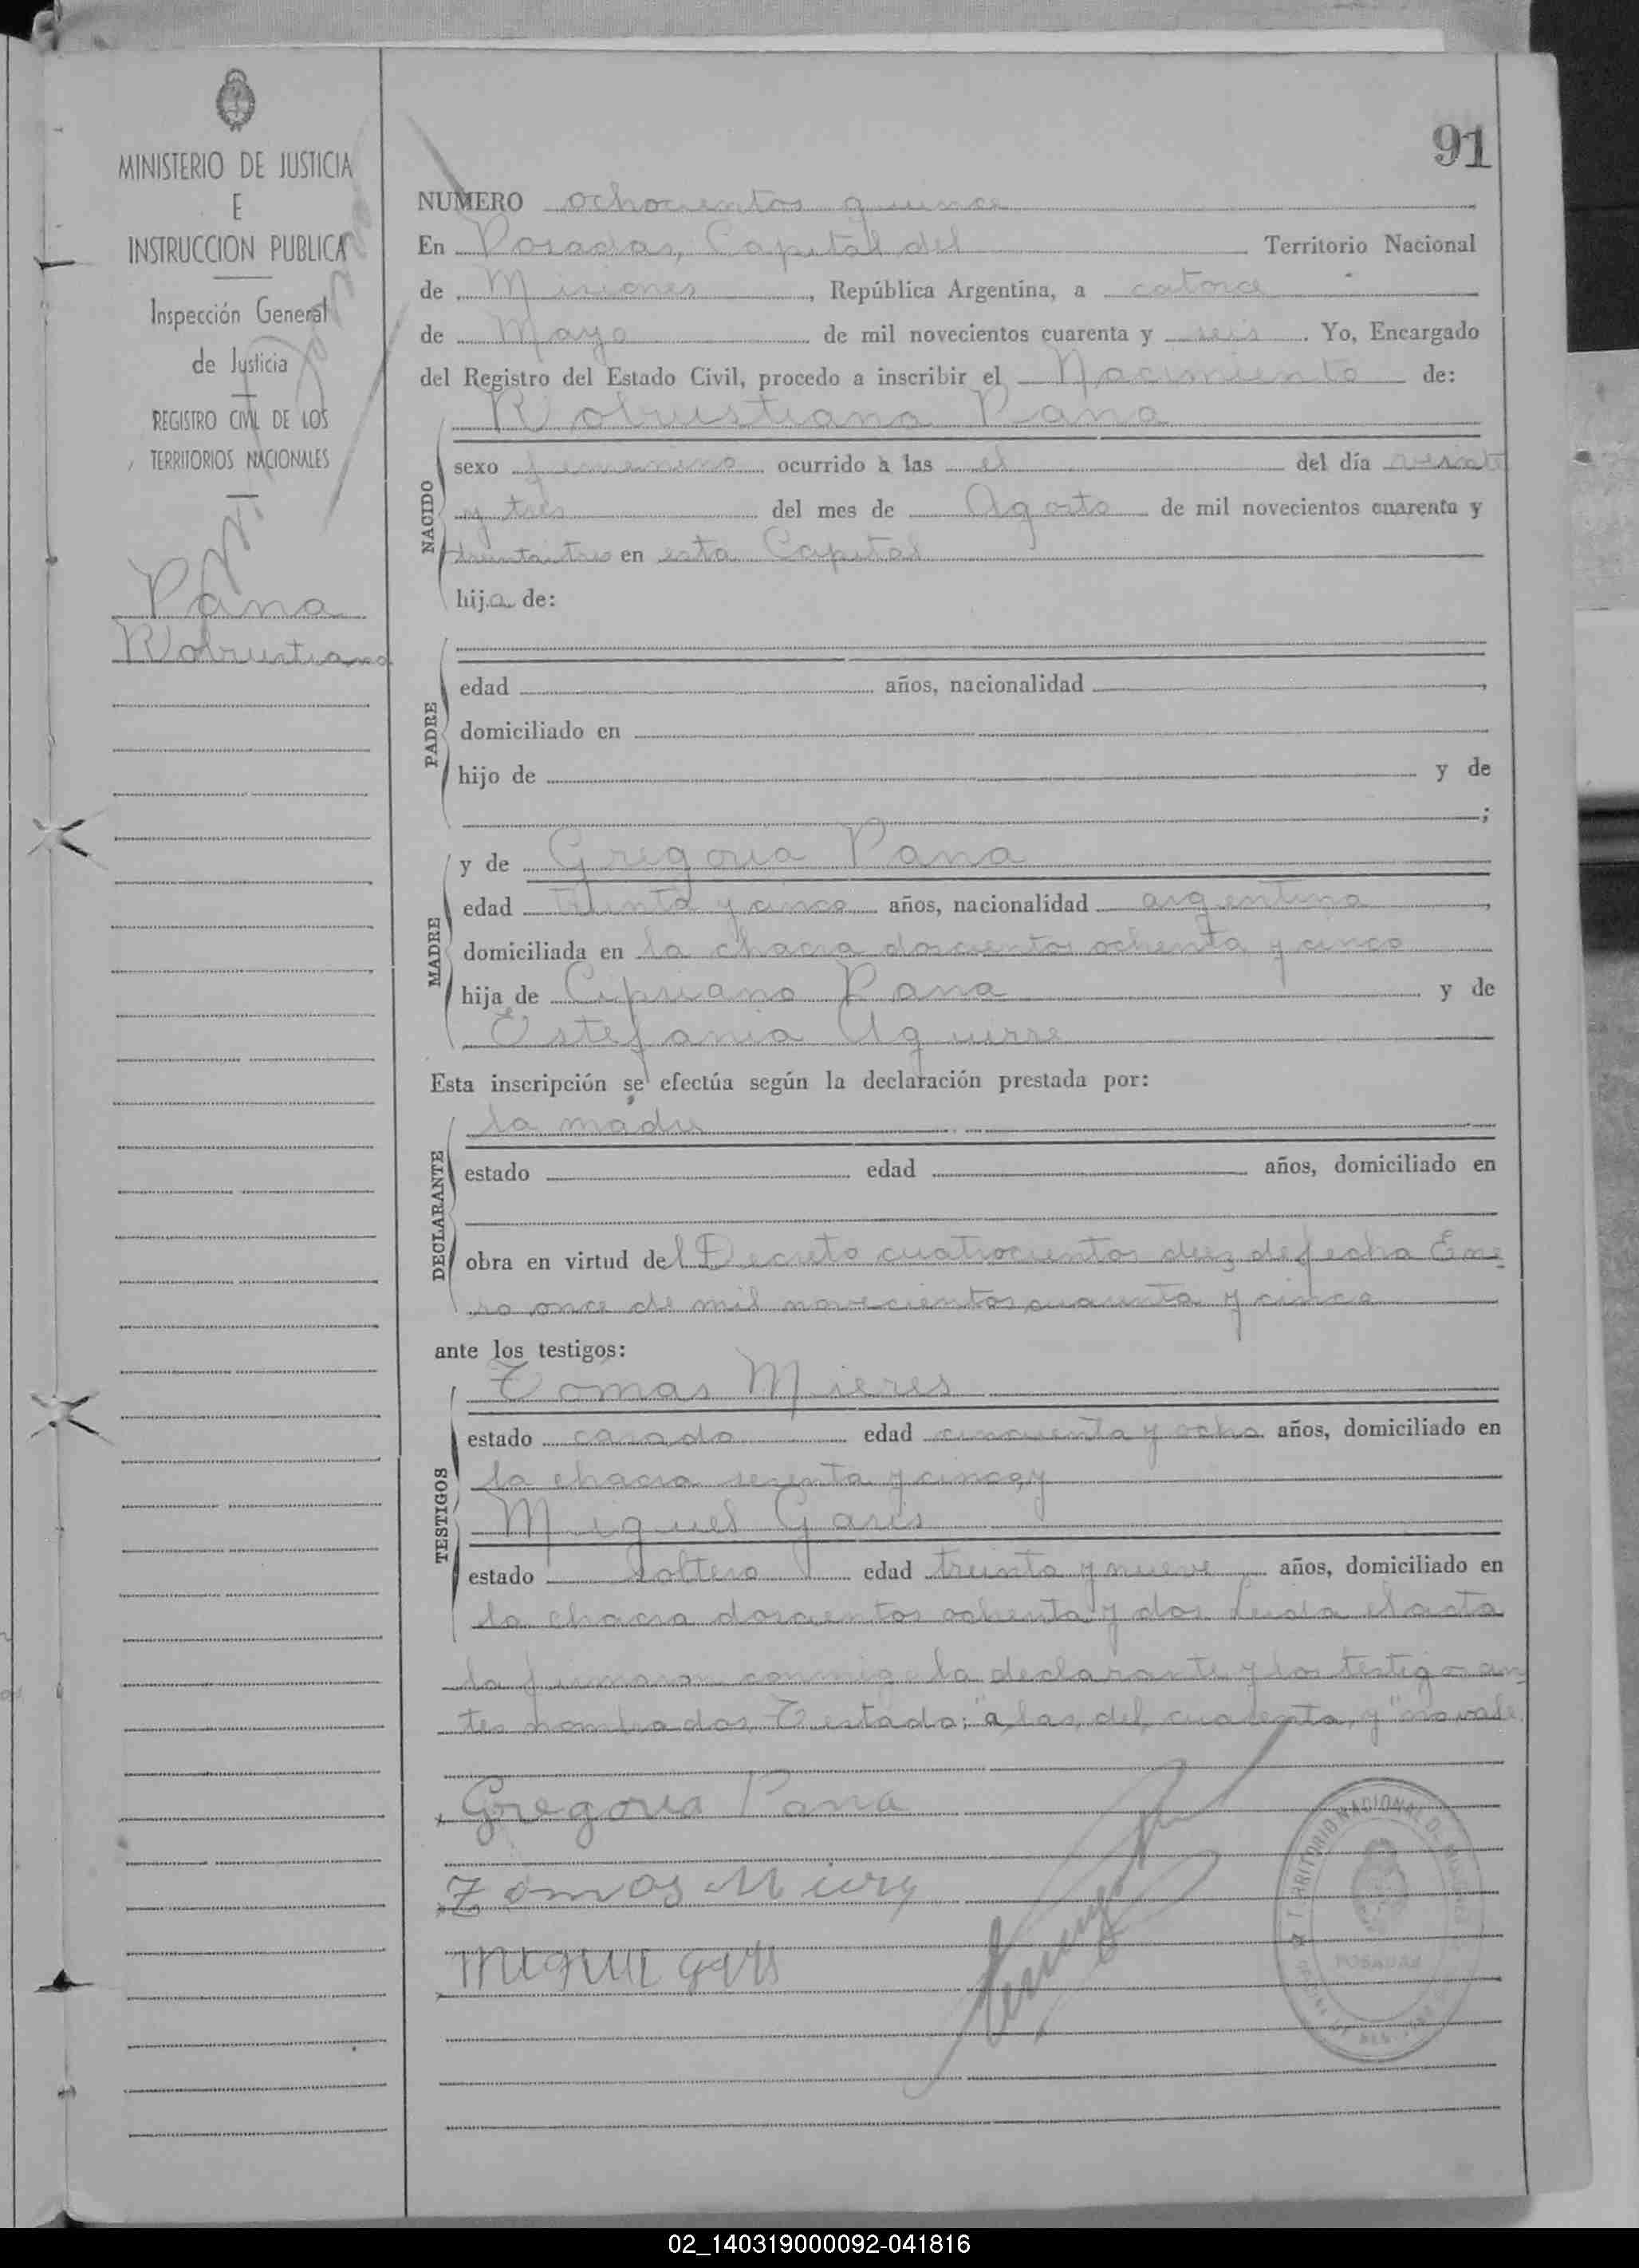 91
MINISTERIO DE JUSTICIA
E
INSTRUCCION PUBLICA
Inspección General
de Justicia
REGISTRO CIVIL DE LOS
TERRITORIOS NACIONALES
Pana
Robustiana
NUMERO ochocientos quince
En Posadas, Capital del Territorio Nacional
de Misiones, República Argentina, a catorce
de Mayo de mil novecientos cuarenta y seis. Yo, Encargado
del Registro del Estado Civil, procedo a inscribir el Nacimiento de:
Robustiana Pana
NACIDO
sexo femenino ocurrido à las el del día veinte
y tres del mes de Agosto de mil novecientos cuarenta y
treinta tres en esta Capital
hija de:
PADRE
edad años, nacionalidad ,
domiciliado en
hijo de y de
;
MADRE
y de Gregoria Pana
edad treinta y cinco años, nacionalidad argentina,
domiciliada en la chacra doscientos ochenta y cinco
hija de Cipriano Pana y de
Estefania Aguirre
Esta inscripción se efectúa según la declaración prestada por:
DECLARANTE
la madre
estado edad años, domiciliado en
obra en virtud del Decreto cuatrocientos diez de fecha Ene-
ro once de mil novecientos cuarenta y cinco
ante los testigos:
TESTIGOS
Tomas Mieres
estado casado edad cincuenta y ocho años, domiciliado en
la chacra sesenta y cinco, y
Miguel Garis
estado soltero edad treinta y nueve años, domiciliado en
la chacra doscientos ochenta y dos Leida el acta
la firmaron conmigo la declarante y los testigos an
tes nombrados Testado: "a, las, del, cuarenta, y" no vale.
Gregoria Pana
Tomas Miere
Miguel Garis
TERRITORIO NACIONAL DE MISIONES
POSADAS
02_140319000092-041816